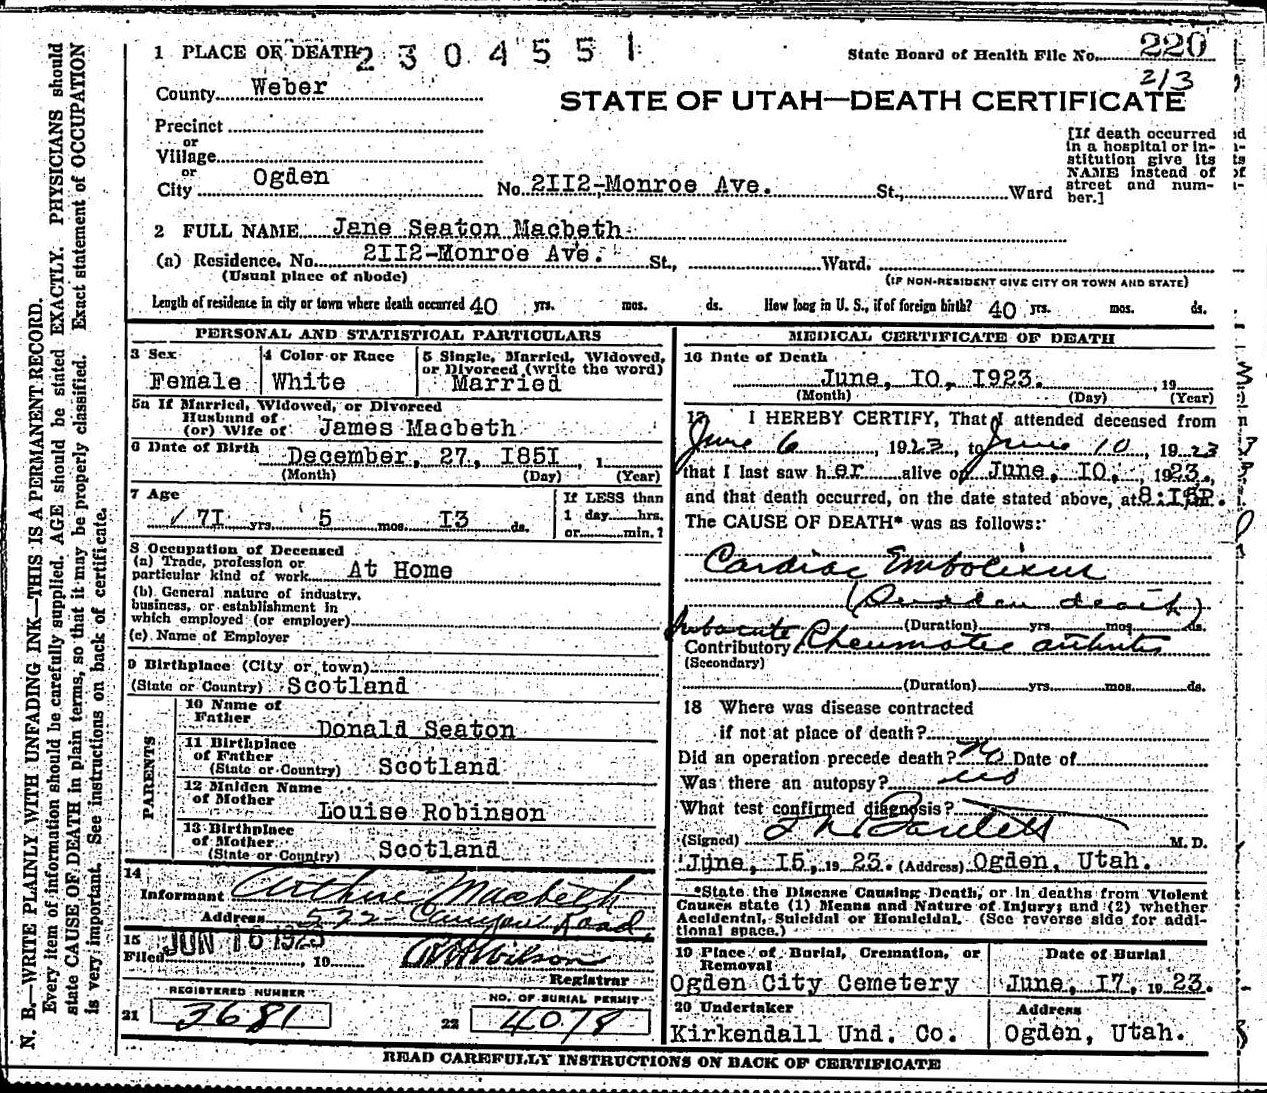 1 PLACE OF DEATH 2304551
State Board of Health File No. 220
213
County Weber
STATE OF UTAH—DEATH CERTIFICATE
Precinct
or
Village
or
City Ogden
No. 2II2-Monroe Ave. St., Ward
[If death occurred in a hospital or institution give its NAME instead of street and number.]
2 FULL NAME Jane Seaton Macbeth
(a) Residence. No. 2II2-Monroe Ave. St., Ward.
(Usual place of abode)
(IF NON-RESIDENT GIVE CITY OR TOWN AND STATE)
Length of residence in city or town where death occurred 40 yrs. mos. ds. How long in U. S., if of foreign birth? 40 yrs. mos. ds.
PERSONAL AND STATISTICAL PARTICULARS
3 Sex
Female
4 Color or Race
White
5 Single, Married, Widowed,
or Divorced (write the word)
Married
5a If Married, Widowed, or Divorced
Husband of
(or) Wife of James Macbeth
6 Date of Birth December, 27, I85I, 1
(Month) (Day) (Year)
7 Age
7I yrs. 5 mos. I3 ds.
If LESS than
1 day hrs.
or min.?
8 Occupation of Deceased
(a) Trade, profession or
particular kind of work At Home
(b) General nature of industry,
business, or establishment in
which employed (or employer)
(c) Name of Employer
9 Birthplace (City or town)
(State or Country) Scotland
PARENTS
10 Name of
Father Donald Seaton
11 Birthplace
of Father
(State or Country) Scotland
12 Maiden Name
of Mother Louise Robinson
13 Birthplace
of Mother
(State or Country) Scotland
14
Informant Arthur Macbeth
Address 522 Canyon Road
15
Filed JUN 16 1923, 19
R H Wilson
Registrar
REGISTERED NUMBER
21 3681
NO. OF BURIAL PERMIT
22 4078
MEDICAL CERTIFICATE OF DEATH
16 Date of Death
June, IO, I923. , 19
(Month) (Day) (Year)
17 I HEREBY CERTIFY, That I attended deceased from
June 6, 1923, to June 10, 1923
that I last saw her alive on June, IO, , 1923.,
and that death occurred, on the date stated above, at 8:I5P.m.
The CAUSE OF DEATH* was as follows:
Cardiac Embolism
(Sudden death)
(Duration) yrs. mos. ds.
Subacute Rheumatic arthritis
Contributory
(Secondary)
(Duration) yrs. mos. ds.
18 Where was disease contracted
if not at place of death?
Did an operation precede death? No Date of
Was there an autopsy? no
What test confirmed diagnosis?
(Signed) Bartlett M. D.
June, I5, 19 23. (Address) Ogden, Utah.
*State the Disease Causing Death, or in deaths from Violent
Causes state (1) Means and Nature of Injury; and (2) whether
Accidental, Suicidal or Homicidal. (See reverse side for addi-
tional space.)
19 Place of Burial, Cremation, or
Removal
Ogden City Cemetery
Date of Burial
June, I7, 19 23.
20 Undertaker
Kirkendall Und. Co.
Address
Ogden, Utah.
READ CAREFULLY INSTRUCTIONS ON BACK OF CERTIFICATE
N. B.—WRITE PLAINLY WITH UNFADING INK—THIS IS A PERMANENT RECORD.
Every item of information should be carefully supplied. AGE should be stated EXACTLY. PHYSICIANS should
state CAUSE OF DEATH in plain terms, so that it may be properly classified. Exact statement of OCCUPATION
is very important. See instructions on back of certificate.